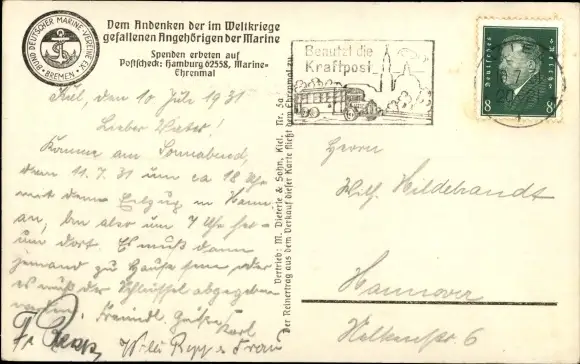 BUND DEUTSCHER MARINE-VEREINE E.V.
BREMEN
Dem Andenken der im Weltkriege
gefallenen Angehörigen der Marine
Spenden erbeten auf
Postscheck: Hamburg 02558, Marine-
Ehrenmal
Kiel, den 10 Juli 1931
Lieber Vater!
Komme am Sonnabend,
dem 11.7.31 um ca 18 Uhr
mit dem Eilzug in Hann.
an, bin also um 7 Uhr her-
um dort. Es muß dann
jemand zu Hause sein oder
es muß der Schlüssel abgegeben
werden. Freundl. Grüße Karl
Fr. Willi Repp u Frau
Vertrieb: M. Dieterle & Sohn, Kiel. Nr. 5a
Der Reinertrag aus dem Verkauf dieser Karte fließt dem Ehrenmal zu
Benutzt die
Kraftpost
Deutsches Reich
8 8
Herrn
Hildebrandt
Hannover
6